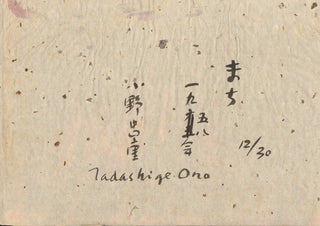 まち
12/30
一九五八
小野忠重
Tadashige Ono